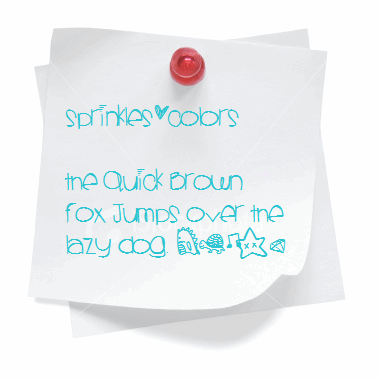 sprinkles♥colors
the Quick Brown
fox Jumps over the
lazy dog